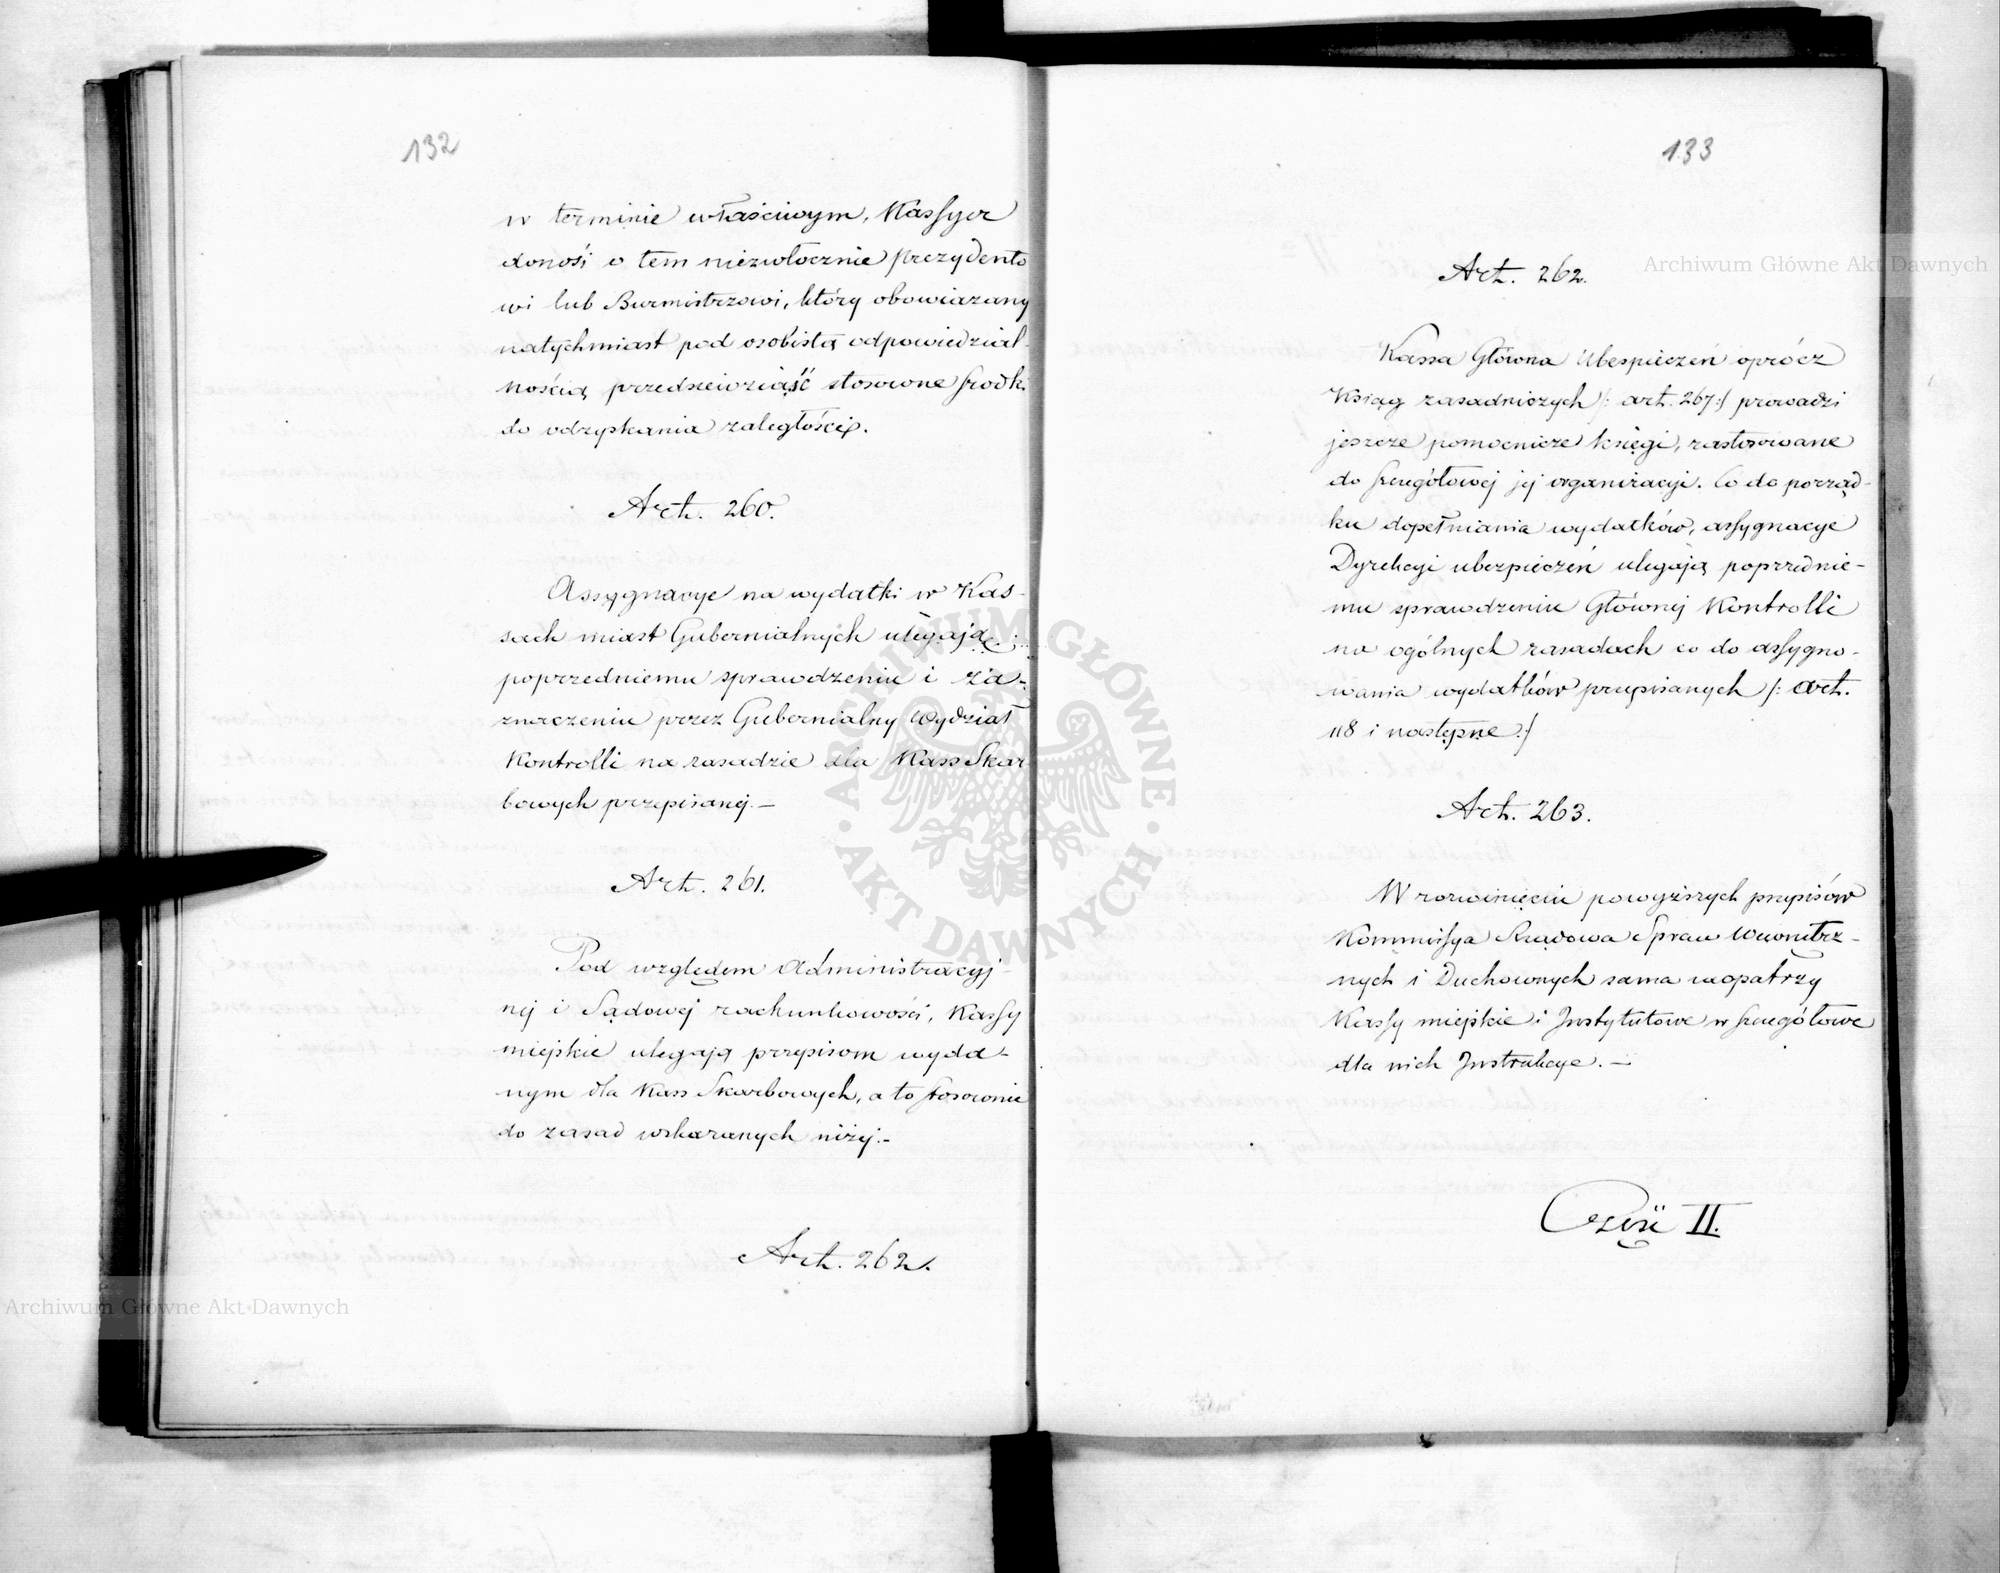 132
w terminie właściwym, Kassyer
donosi o tem niezwłocznie prezydento
wi lub Burmistrzowi, który obowiązany
natychmiast pod osobistą odpowiedzial-
nością przedsięwziąść stosowne środk.
do odzyskania zaległości.
Art. 260.
Assygnacye na wydatki w Kas-
sach miast Gubernialnych ulegają
poprzedniemu sprawdzeniu i za-
znaczeniu przez Gubernialny Wydział
Kontrolli na zasadzie dla Kass Skar
bowych przepisanej.—
Art. 261.
Pod względem Administracyj-
nej i Sądowej rachunkowości, Kassy
miejskie ulegają przepisom wyda-
nym dla Kass Skarbowych, a to stosownie
do zasad wskazanych niżej.—
Art. 262.
133
Art. 262.
Kassa Główna Ubespieczeń oprócz
Ksiąg zasadniczych /: art. 267:/ prowadzi
jeszcze pomocnicze księgi, zastosowane
do szczegółowej jej organizacyi. Co do porząd-
ku dopełniania wydatków, assygnacye
Dyrekcyi ubezpieczeń ulegają poprzednie-
mu sprawdzeniu Głównej Kontrolli
na ogólnych zasadach co do assygno-
wania wydatków przepisanych /: art.
118 i następne:/
Art. 263.
W rozwinięciu powyższych przepisów
Kommissya Rządowa Spraw Wewnętrz-
nych i Duchownych sama zaopatrzy
Kassy miejskie i Instytutowe w szczegółowe
dla nich Instrukcye.—
Część II.
Archiwum Główne Akt Dawnych
Archiwum Główne Akt Dawnych
ARCHIWUM GŁÓWNE
AKT DAWNYCH